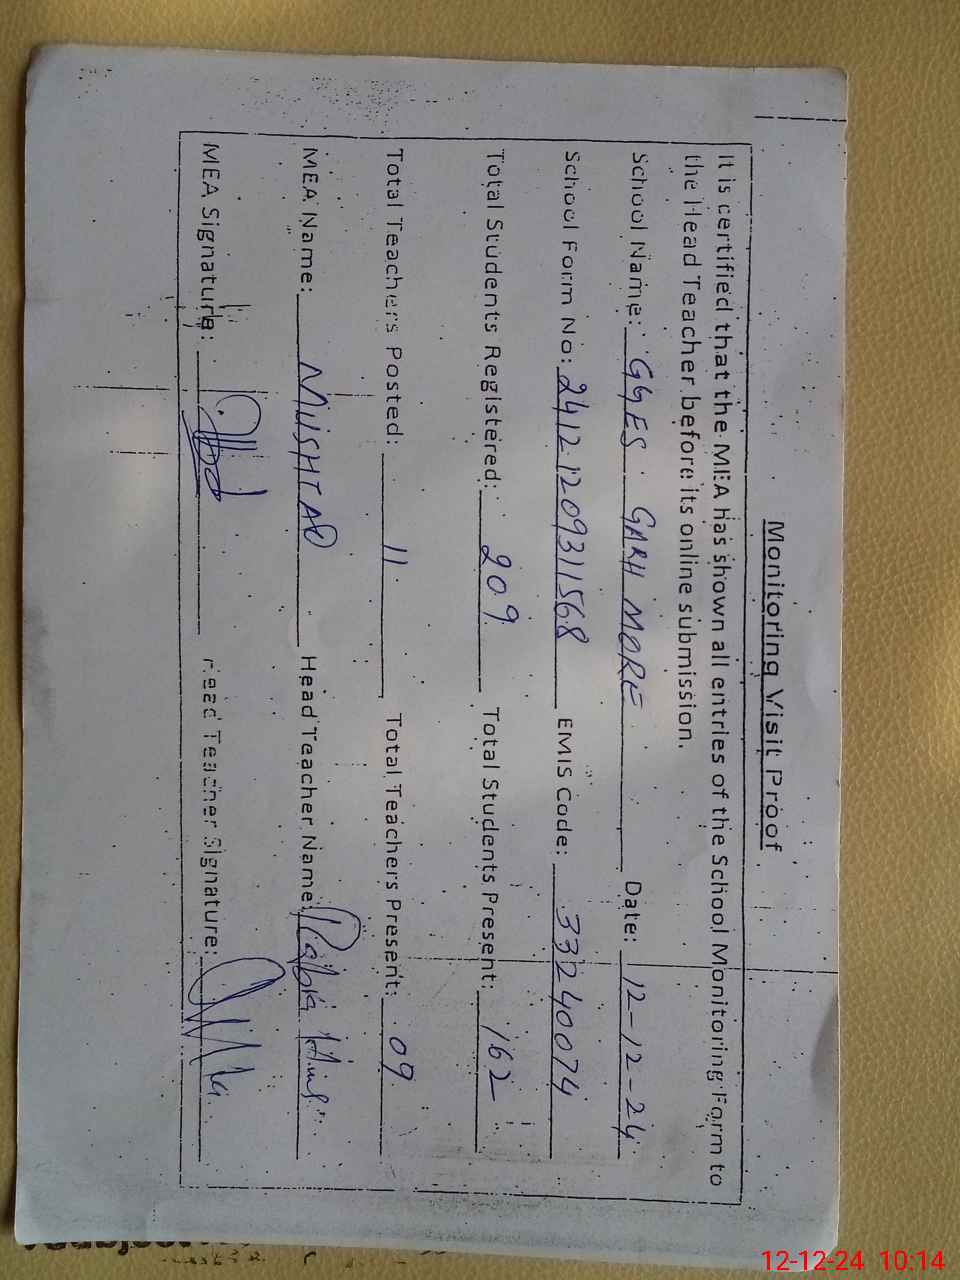 Monitoring Visit Proof
It is certified that the MEA has shown all entries of the School Monitoring Form to
the Head Teacher before its online submission.
School Name: GGES GARH MORE Date: 12-12-24
School Form No: 24121209311568 EMIS Code: 33240074
Total Students Registered: 209 Total Students Present: 162
Total Teachers Posted: 11 Total Teachers Present: 09
MEA Name: MUSHTAQ Head Teacher Name: Rabia
MEA Signature: Head Teacher Signature:
12-12-24 10:14